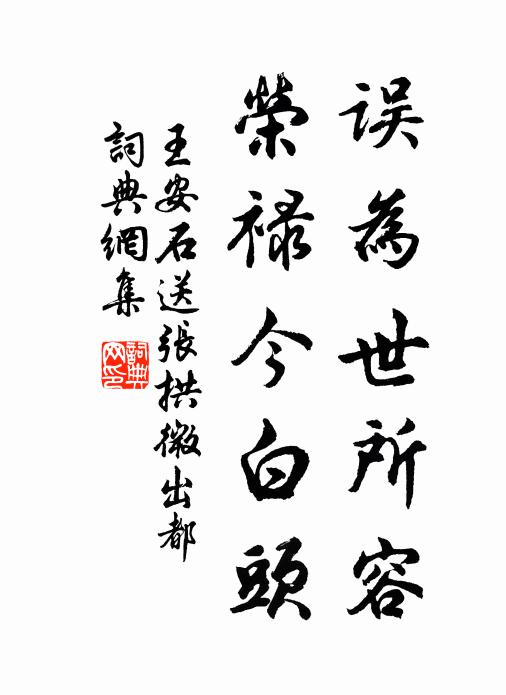 误為世所容
榮禄今白頭
王安石送張拱微出都
詞典網集
詞典网印